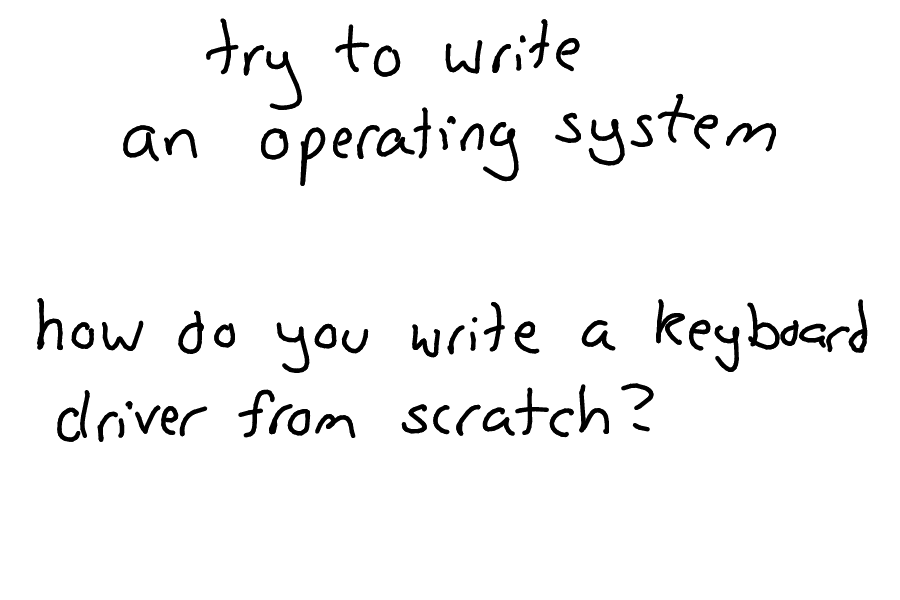 try to write
an operating system
how do you write a keyboard
driver from scratch?